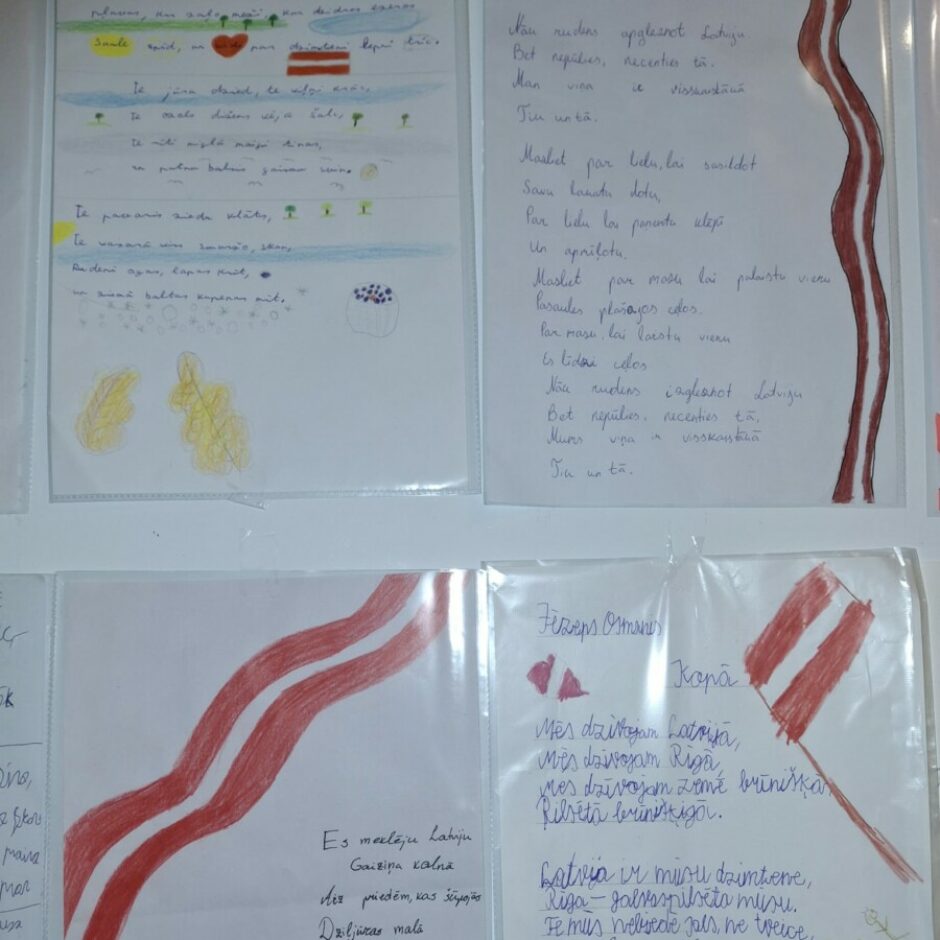 pļavas, kur zaļo meži, kur dzidros ezeros
Saule spīd, un sirds par dzimteni lepni tric.
Te jūra dzied, te viļņi krāc,
Te vecls dižens vēja šalc,
Te rīti miglā maigi tinas,
un putns baltais gaisam zina.
Te pavasaris ziedu klāts,
Te vasarā viss smaržo, skan,
Rudenī ogas, lapas krīt,
un ziemā baltas kupenas mīt.
Nāc rudens apgleznot Latviju
Bet nepūlies, necenties tā.
Man viņa ir visskaistākā
Tik un tā.
Mazliet par lielu, lai sasildot
Savu lauztu dotu,
Par lielu lai paņemtu klēpī
Un apmīļotu.
Mazliet par mazu lai palaistu vienu
Pasaules plašajos ceļos.
Par mazu, lai laistu vienu
Es līdzi ceļos
Nāc rudens izgleznot Latviju
Bet nepūlies, necenties tā,
Mums viņa ir visskaistākā
Tik un tā.
Es meklēju Latviju
Gaiziņa kalnā
Aiz priedēm, kas šūpojās
Dziļjūras malā
Jēzeps Osmanis
Kopā
Mēs dzīvojam Latvijā,
Mēs dzīvojam Rīgā,
Mes dzīvojam zemē brīnišķā,
Pilsētā brīnišķīgā.
Latvija ir mūsu dzimtene,
Rīga – galvaspilsēta mūsu.
Te mūs nebiedē sals, ne tveice,